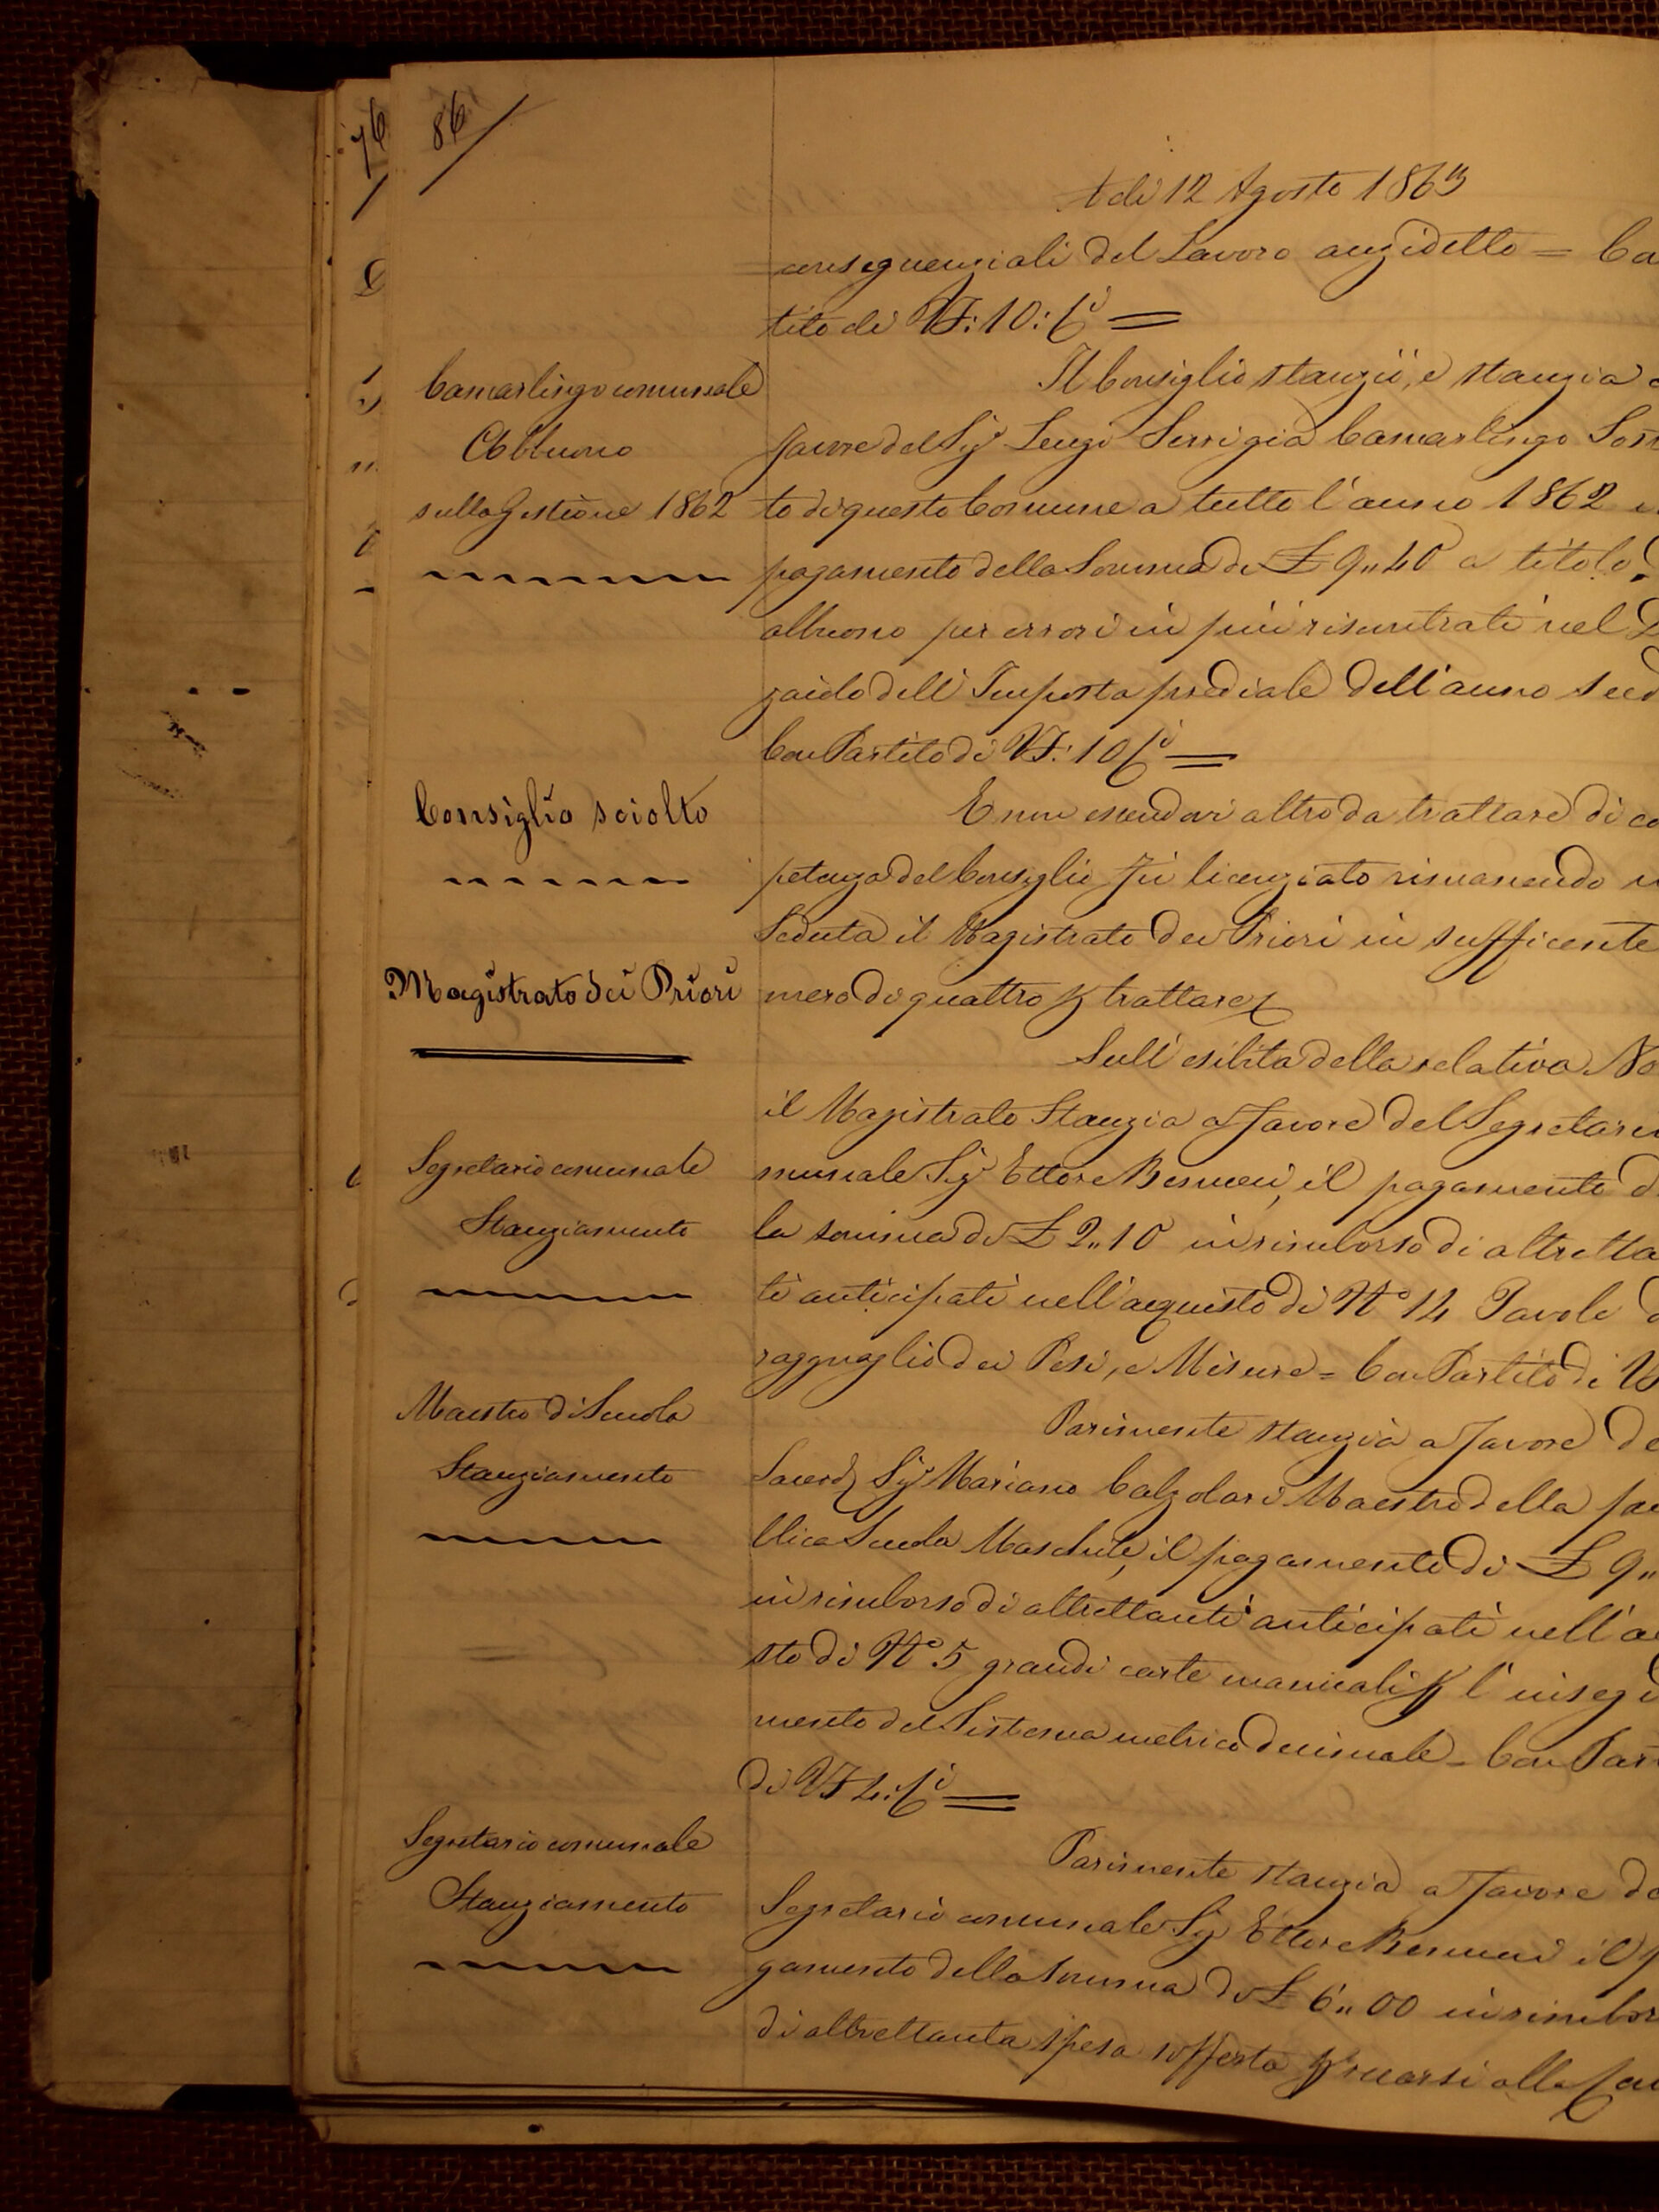 76
86
A dì 12 Agosto 1863
consequenziali del Lavoro anzidetto = Co
tito di VF: 10: Ci =
Camarlingo comunale
Abbuono
sulla Gestione 1862
Il Consiglio stanziò, e stanzia a
favore del Sig. Camarlingo
to di questo Comune a tutto l'anno 1862
pagamento della Somma di £ 9,,40 a titolo
abbuono per errori in più riscontrati nel
zaiolo dell'Imposta prediale dell'anno
Con Partito di VF: 10 Ci =
Consiglio sciolto
E non essendovi altro da trattare di co
petenza del Consiglio fù licenziato rimanendo in
Seduta il Magistrato dei Priori in sufficente
Magistrato dei Priori
mero di quattro p trattare
Sull'esibita della relativa No
il Magistrato Stanzia a favore del Segretario
Segretario comunale
Stanziamento
munale Sig. Ettore il pagamento d
la somma di £ 2,,10 in rimborso di altretta
ti anticipati nell'acquisto di N° 14 Tavole d
ragguaglio dei Pesi, e Misure = Con Partito di V
Maestro di Scuola
Stanziamento
Parimente stanzia a favore de
Sacerd. Sig. Mariano Calzolari Maestro della pu
bblica Scuola Maschile, il pagamento di £ 9,,
in rimborso di altrettanti anticipati nell'ac
sto di N° 5 grandi carte murali p l'inseg
mento del Sistema metrico decimale = Con Par
di VF 4: Ci =
Segretario comunale
Stanziamento
Parimente stanzia a favore de
Segretario comunale Sig. Ettore il p
gamento della Somma di £ 6,,00 in rimbor
di altrettanta spesa sofferta p recarsi alla